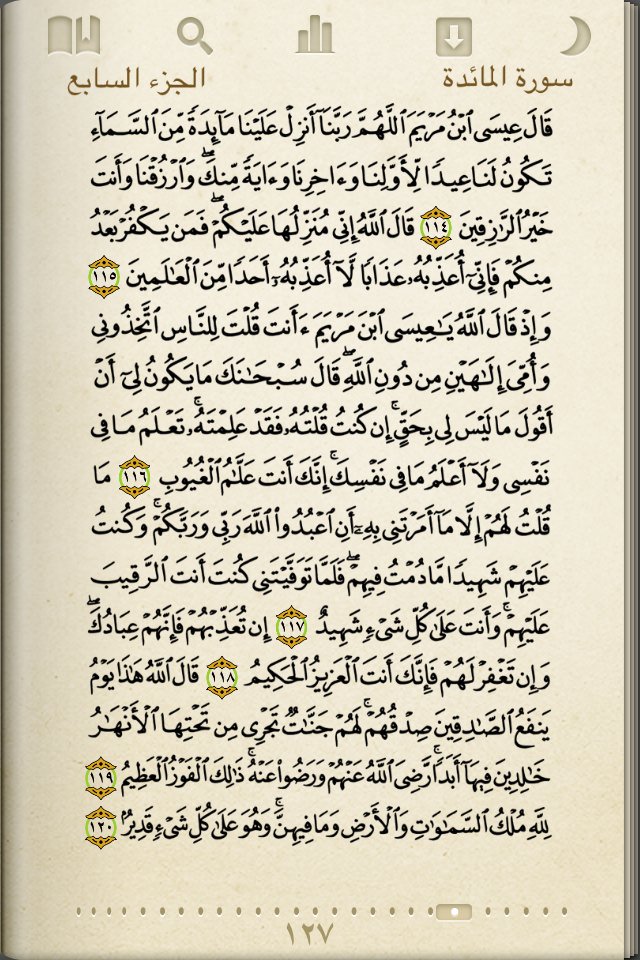 سورة المائدة
الجزء السابع
قَالَ عِيسَى ٱبْنُ مَرْيَمَ ٱللَّهُمَّ رَبَّنَآ أَنزِلْ عَلَيْنَا مَآئِدَةً مِّنَ ٱلسَّمَآءِ
تَكُونُ لَنَا عِيدًا لِّأَوَّلِنَا وَءَاخِرِنَا وَءَايَةً مِّنكَ ۖ وَٱرْزُقْنَا وَأَنتَ
خَيْرُ ٱلرَّٰزِقِينَ ١١٤ قَالَ ٱللَّهُ إِنِّى مُنَزِّلُهَا عَلَيْكُمْ ۖ فَمَن يَكْفُرْ بَعْدُ
مِنكُمْ فَإِنِّىٓ أُعَذِّبُهُۥ عَذَابًا لَّآ أُعَذِّبُهُۥٓ أَحَدًا مِّنَ ٱلْعَٰلَمِينَ ١١٥
وَإِذْ قَالَ ٱللَّهُ يَٰعِيسَى ٱبْنَ مَرْيَمَ ءَأَنتَ قُلْتَ لِلنَّاسِ ٱتَّخِذُونِى
وَأُمِّىَ إِلَٰهَيْنِ مِن دُونِ ٱللَّهِ ۖ قَالَ سُبْحَٰنَكَ مَا يَكُونُ لِىٓ أَنْ
أَقُولَ مَا لَيْسَ لِى بِحَقٍّ ۚ إِن كُنتُ قُلْتُهُۥ فَقَدْ عَلِمْتَهُۥ ۚ تَعْلَمُ مَا فِى
نَفْسِى وَلَآ أَعْلَمُ مَا فِى نَفْسِكَ ۚ إِنَّكَ أَنتَ عَلَّٰمُ ٱلْغُيُوبِ ١١٦ مَا
قُلْتُ لَهُمْ إِلَّا مَآ أَمَرْتَنِى بِهِۦٓ أَنِ ٱعْبُدُوا۟ ٱللَّهَ رَبِّى وَرَبَّكُمْ ۚ وَكُنتُ
عَلَيْهِمْ شَهِيدًا مَّا دُمْتُ فِيهِمْ ۖ فَلَمَّا تَوَفَّيْتَنِى كُنتَ أَنتَ ٱلرَّقِيبَ
عَلَيْهِمْ ۚ وَأَنتَ عَلَىٰ كُلِّ شَىْءٍ شَهِيدٌ ١١٧ إِن تُعَذِّبْهُمْ فَإِنَّهُمْ عِبَادُكَ ۖ
وَإِن تَغْفِرْ لَهُمْ فَإِنَّكَ أَنتَ ٱلْعَزِيزُ ٱلْحَكِيمُ ١١٨ قَالَ ٱللَّهُ هَٰذَا يَوْمُ
يَنفَعُ ٱلصَّٰدِقِينَ صِدْقُهُمْ ۚ لَهُمْ جَنَّٰتٌ تَجْرِى مِن تَحْتِهَا ٱلْأَنْهَٰرُ
خَٰلِدِينَ فِيهَآ أَبَدًا ۚ رَّضِىَ ٱللَّهُ عَنْهُمْ وَرَضُوا۟ عَنْهُ ۚ ذَٰلِكَ ٱلْفَوْزُ ٱلْعَظِيمُ ١١٩
لِلَّهِ مُلْكُ ٱلسَّمَٰوَٰتِ وَٱلْأَرْضِ وَمَا فِيهِنَّ ۚ وَهُوَ عَلَىٰ كُلِّ شَىْءٍ قَدِيرٌۢ ١٢٠
١٢٧